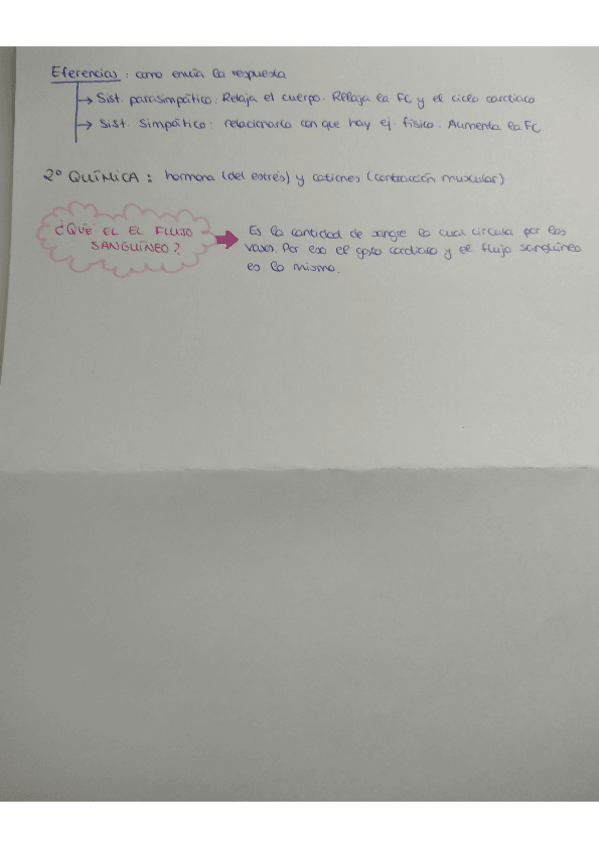 Eferencias : como envía la respuesta
→ Sist. parasimpático: Relaja el cuerpo. Relaja la FC y el ciclo cardiaco
→ Sist. Simpático: relacionarlo con que hay ej. físico. Aumenta la FC
2º QUÍMICA : hormona (del estrés) y cationes (contracción muscular)
¿QUÉ EL EL FLUJO
SANGUÍNEO?
Es la cantidad de sangre la cual circula por los
vasos. Por eso el gasto cardiaco y el flujo sanguíneo
es lo mismo.